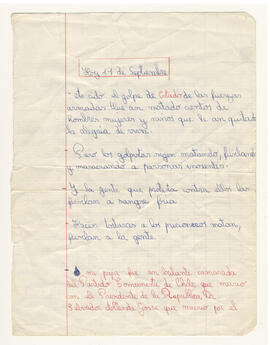 Hoy 11 de Septiembre
- Ha cido el golpe de Estado de las fuerzas
armadas que an matado cientos de
hombres mujeres y ninos que le an quitado
la alegria de vivir.
- Pero los golpistas siguen matando, fusilando
y masacrando a personas inosentes.
- Y la gente que protesta contra ellos los
fusilan a sangre fria.
- Hacen torturas a los pricioneros matan,
fusilan a la gente.
- mi papa fue un militante
del Partido Comunista de Chile, que murio
con el Presidente de la Republica, Dr.
Salvador Allende Gosse que murio por el